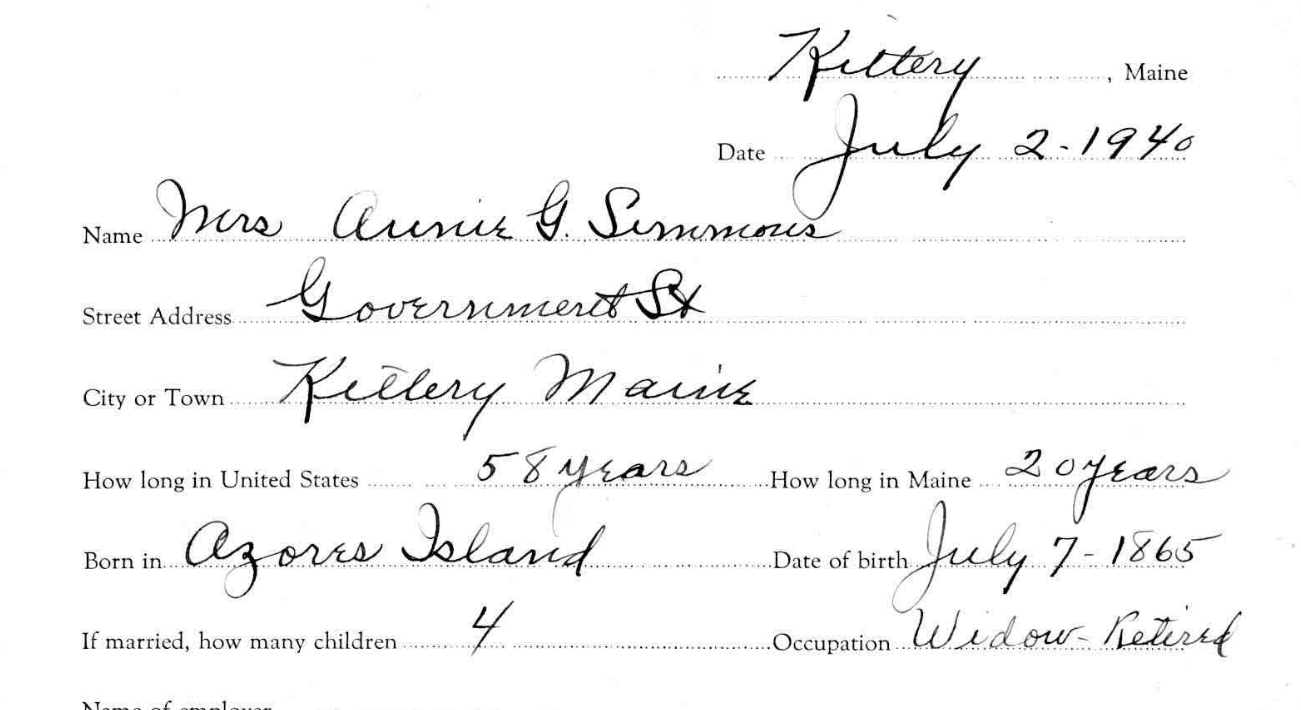 Kittery, Maine
Date July 2-1940
Name Mrs Annie G. Simmons
Street Address Government St
City or Town Kittery Maine
How long in United States 58 years How long in Maine 20 years
Born in Azores Island Date of birth July 7-1865
If married, how many children 4 Occupation Widow-Retired
Name of employer